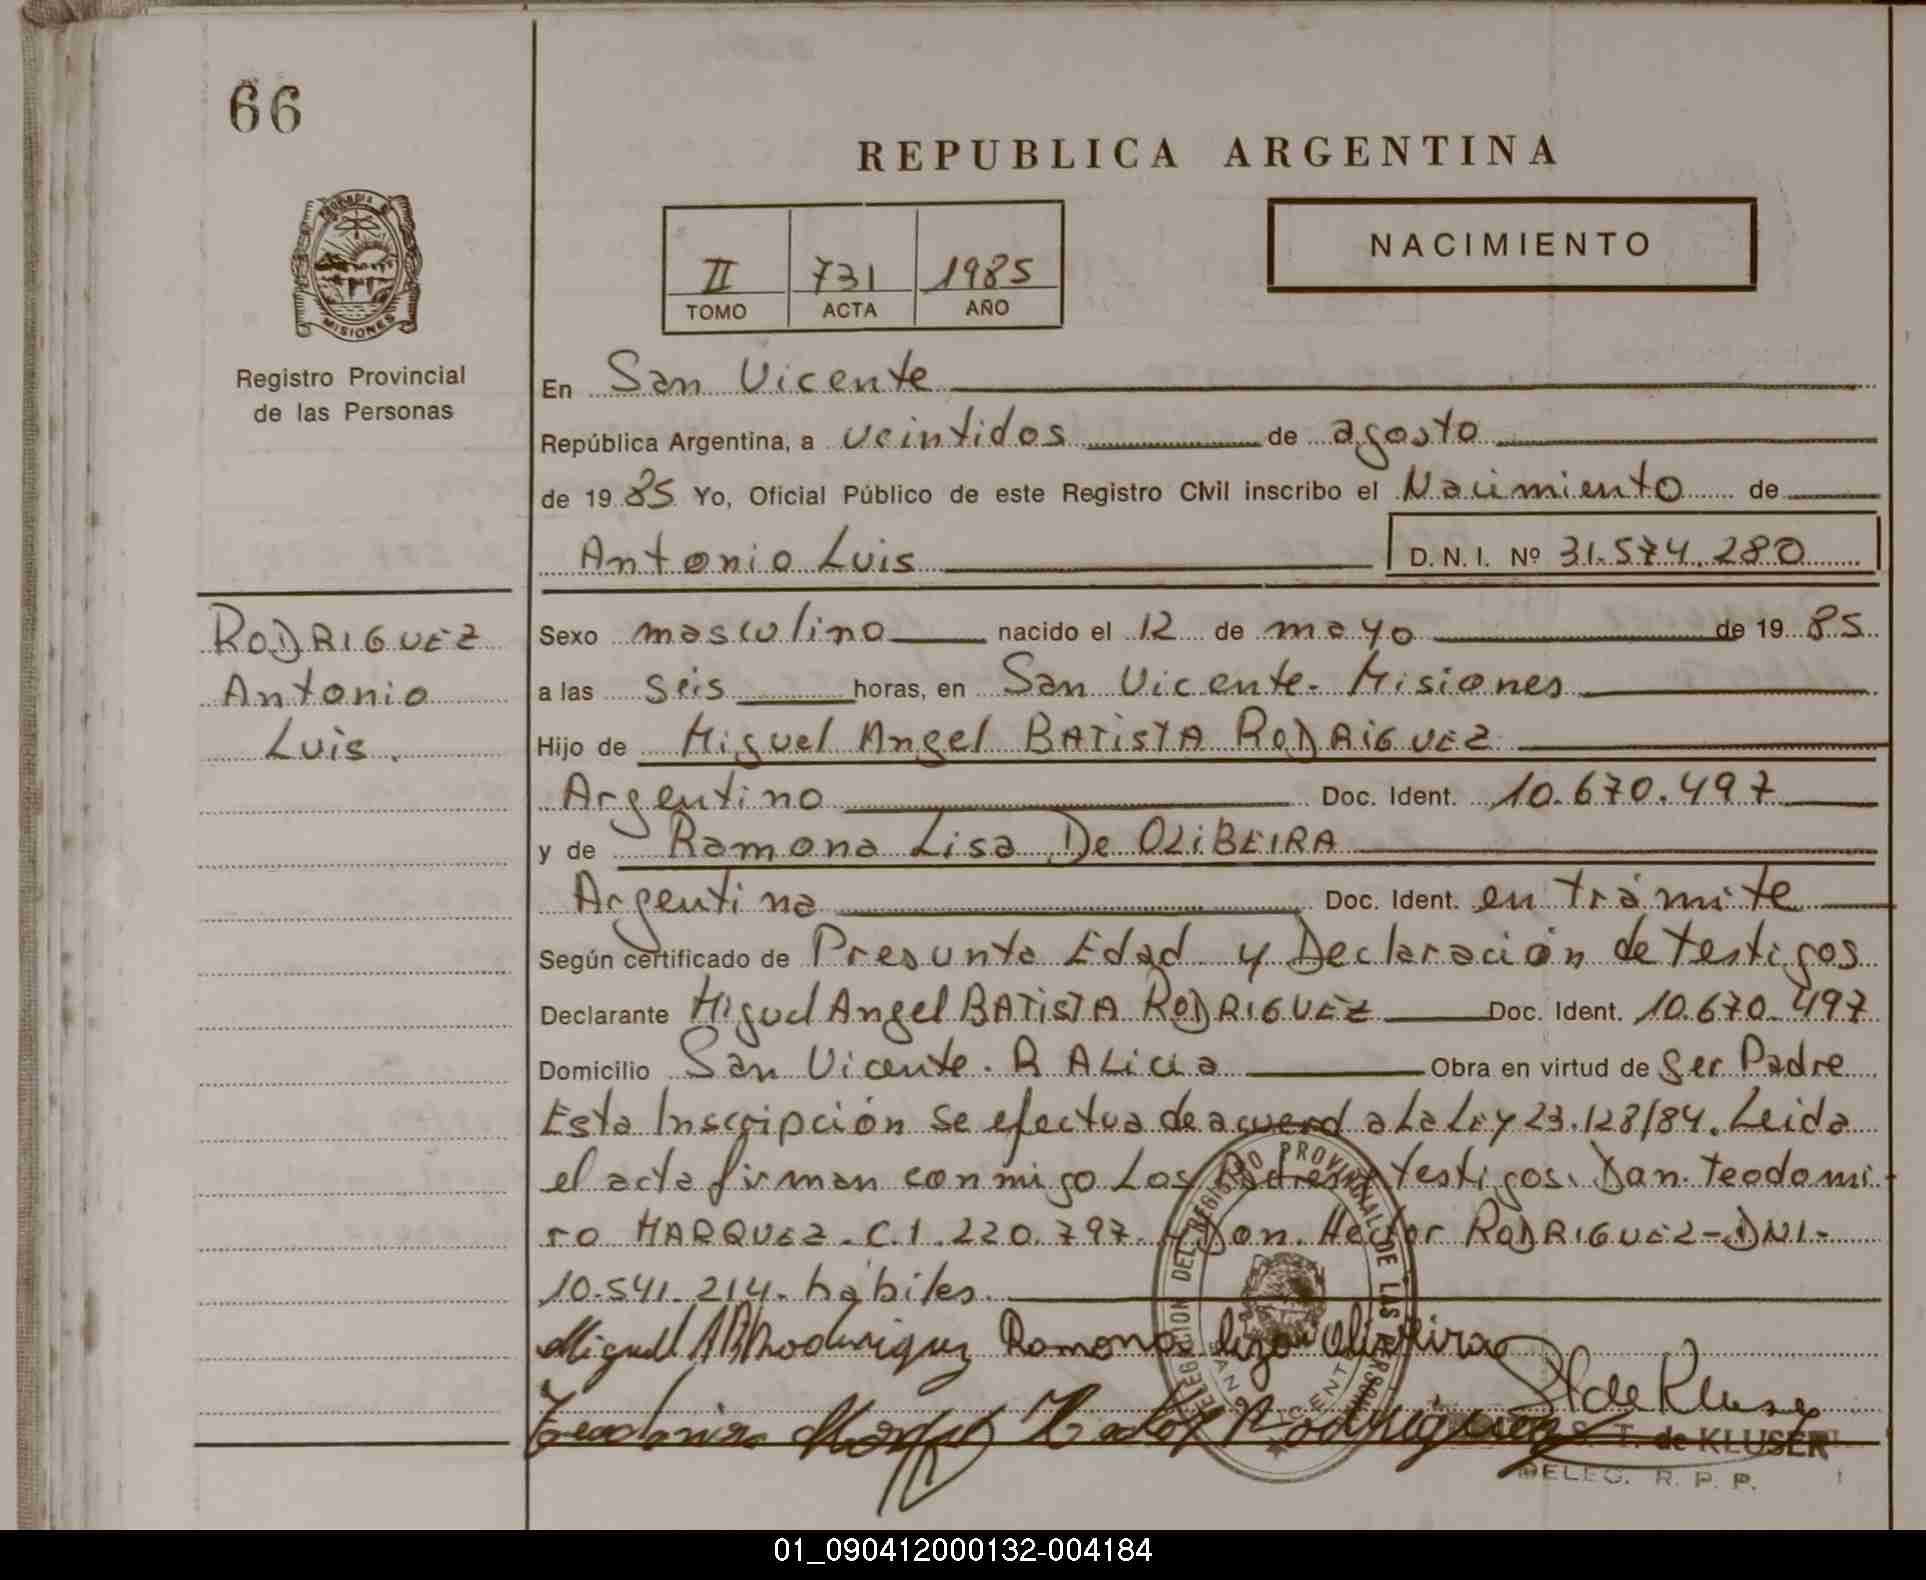 66
REPUBLICA ARGENTINA
PROVINCIA DE
MISIONES
Registro Provincial
de las Personas
II 731 1985
TOMO ACTA AÑO
NACIMIENTO
En San Vicente
República Argentina, a veintidos de agosto
de 1985 Yo, Oficial Público de este Registro Civil inscribo el Nacimiento de
Antonio Luis D.N.I. Nº 31.574.280
RODRIGUEZ
Antonio
Luis.
Sexo masculino nacido el 12 de mayo de 1985
a las seis horas, en San Vicente. Misiones
Hijo de Miguel Angel BATISTA RODRIGUEZ
Argentino Doc. Ident. 10.670.497
y de Ramona Lisa De OLIBEIRA
Argentina Doc. Ident. en trámite
Según certificado de Presunta Edad y Declaración de testigos
Declarante Miguel Angel BATISTA RODRIGUEZ Doc. Ident. 10.670.497
Domicilio San Vicente. R ALicia Obra en virtud de Ser Padre
Esta Inscripción se efectua de acuerd a La Ley 23.128/84. Leida
el acta firman conmigo Los Padres y testigos. Don. Teodomi-
ro MARQUEZ. C.I. 220.797. y Don. Hector RODRIGUEZ-DNI-
10.541.214. hábiles.
DELEGACION DEL REGISTRO PROVINCIAL DE LAS PERSONAS
SAN VICENTE
Miguel A B Rodriguez Ramona Liza Oliveira
Hector Rodriguez
S T de Kluser
S. T. de KLUSER
DELEG. R. P. P.
01_090412000132-004184